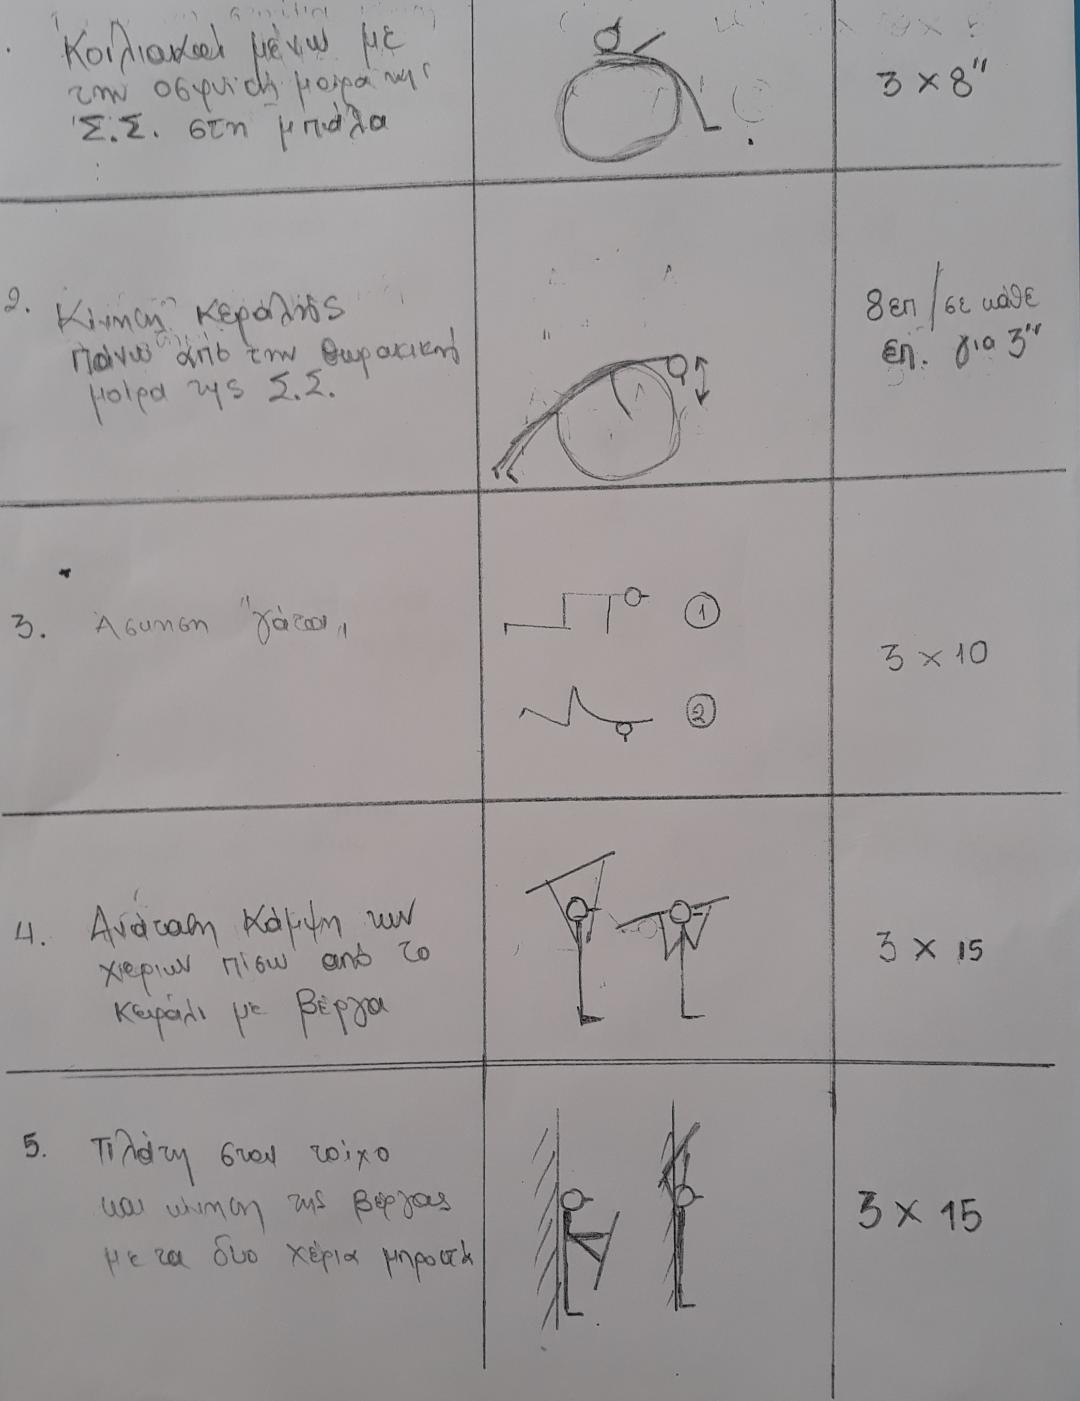 Κοιλιακοί μένω με
την οσφυϊκή μοίρα της
Σ.Σ. στη μπάλα
3 × 8"
2. Κίνηση κεφαλής
πάνω από την θωρακική
μοίρα της Σ.Σ.
8επ/σε κάθε
επ. για 3"
3. Άσκηση "γάτα"
1
2
3 × 10
4. Ανάταση κάμψη των
χεριών πίσω από το
κεφάλι με βέργα
3 × 15
5. Πλάτη στον τοίχο
και κίνηση της βέργας
με τα δυο χέρια μπροστά
3 × 15